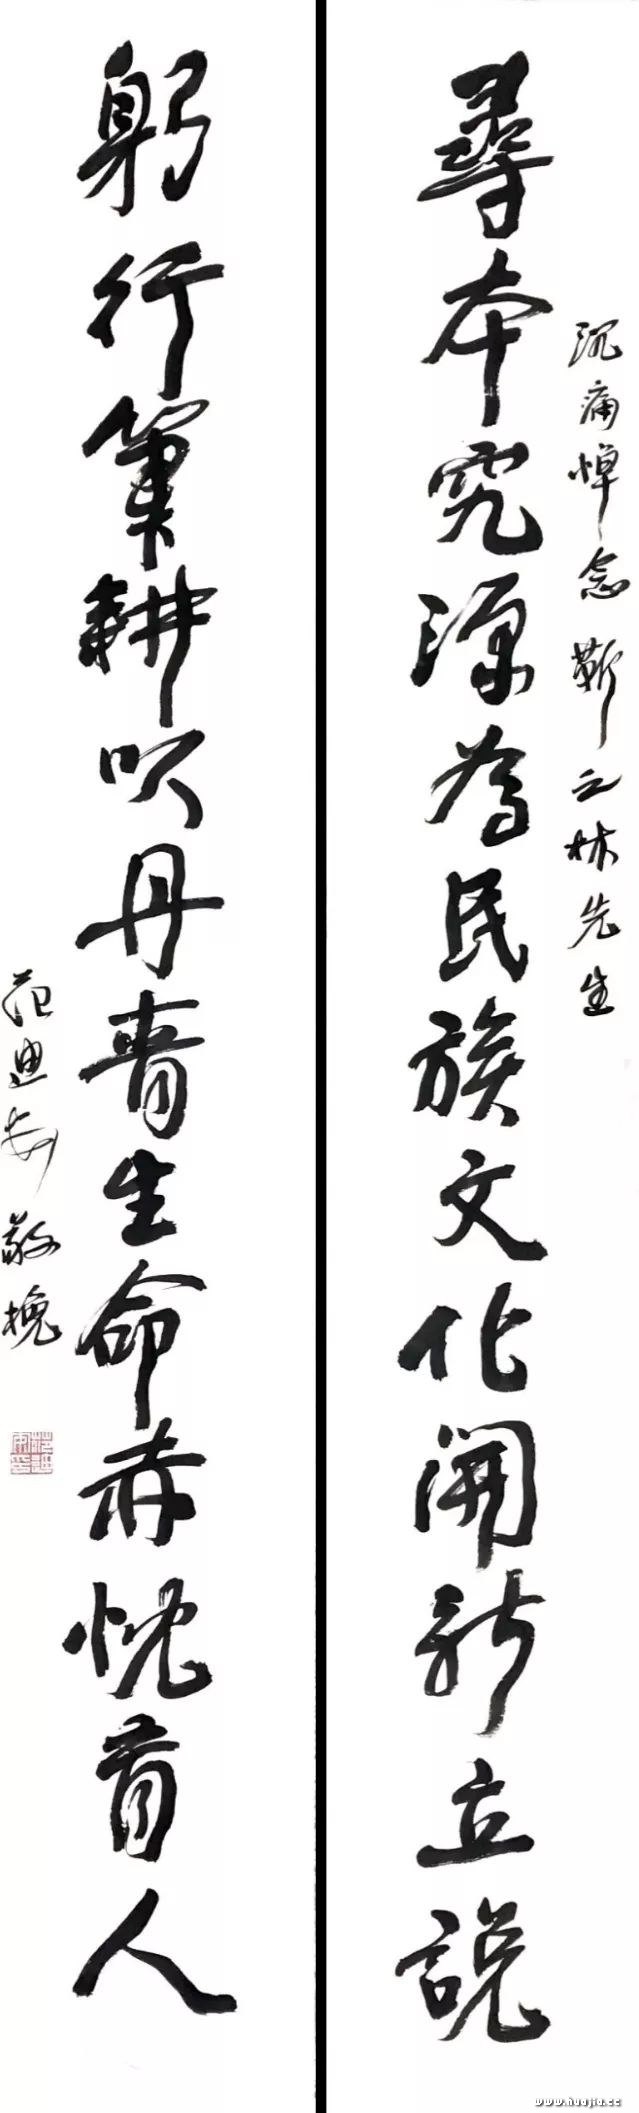 沉痛悼念靳之林先生
尋本究源為民族文化開新立說
躬行筆耕以丹青生命赤忱育人
范迪安敬挽
www.huajia.cc